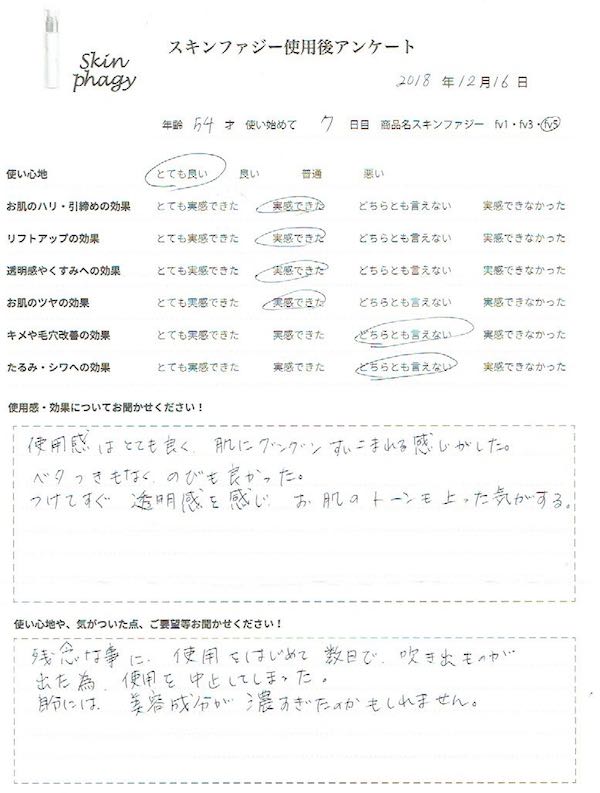 Skin
phagy
スキンファジー使用後アンケート
2018 年 12 月 16 日
年齢 54 才 使い始めて 7 日目 商品名スキンファジー fv1・fv3・fv5
使い心地 とても良い 良い 普通 悪い
お肌のハリ・引締めの効果 とても実感できた 実感できた どちらとも言えない 実感できなかった
リフトアップの効果 とても実感できた 実感できた どちらとも言えない 実感できなかった
透明感やくすみへの効果 とても実感できた 実感できた どちらとも言えない 実感できなかった
お肌のツヤの効果 とても実感できた 実感できた どちらとも言えない 実感できなかった
キメや毛穴改善の効果 とても実感できた 実感できた どちらとも言えない 実感できなかった
たるみ・シワへの効果 とても実感できた 実感できた どちらとも言えない 実感できなかった
使用感・効果についてお聞かせください！
使用感はとても良く、肌にグングンすいこまれる感じがした。
ベタつきもなく、のびも良かった。
つけてすぐ 透明感を感じ、お肌のトーンも上った気がする。
使い心地や、気がついた点、ご要望等お聞かせください！
残念な事に、使用をはじめて数日で、吹き出ものが
出た為、使用を中止してしまった。
自分には、美容成分が濃すぎたのかもしれません。